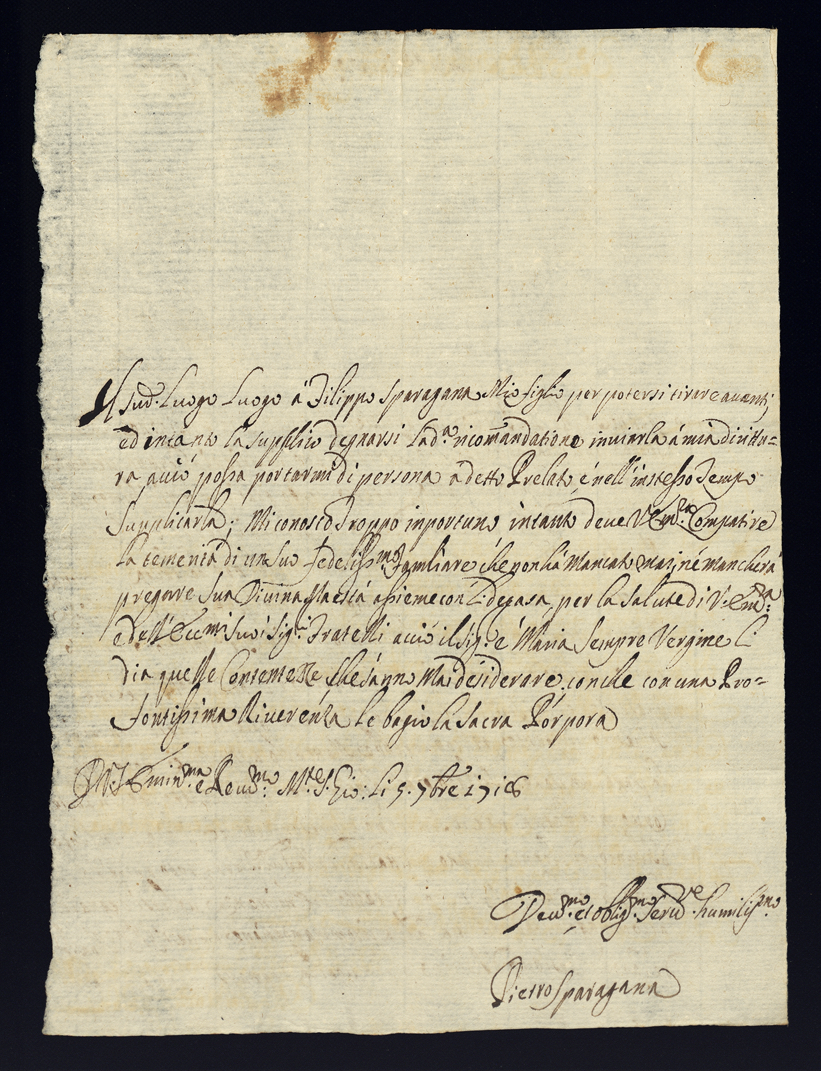 Il sud.o Luogo Luogo à Filippo Sparagana Mio figlio per potersi tirare avanti;
ed intanto la supplico degnarsi la d.a ricomandatione inviarla á mia dirittu=
ra acciò possa portarmi di persona à detto Prelato é nell'instesso Tempo
Supplicarla; Mi conosco Troppo inportuno intanto deve V. Em.za Compatire
la temerità di un suo fedeliss.mo famliare che non há Mancato mai, né mancherá
pregare Sua Divina Maestá assieme con li de casa per la salute di V. Em.za
e dell'Eccmi Suoi Sig.ri Fratelli acciò il Sig.re é Maria Sempre Vergine li
dia quelle Contentezze che sanno Mai desiderare, con che con una Pro=
fontissima Riverenza le bagio la Sacra Pórpora
Di V.E. Emin.ma e Reud.mo M.te S. Gio: li 5. 7bre 1718
Deu.mo et oblig.mo Seru.re humiliss.mo
Pietro Sparagana